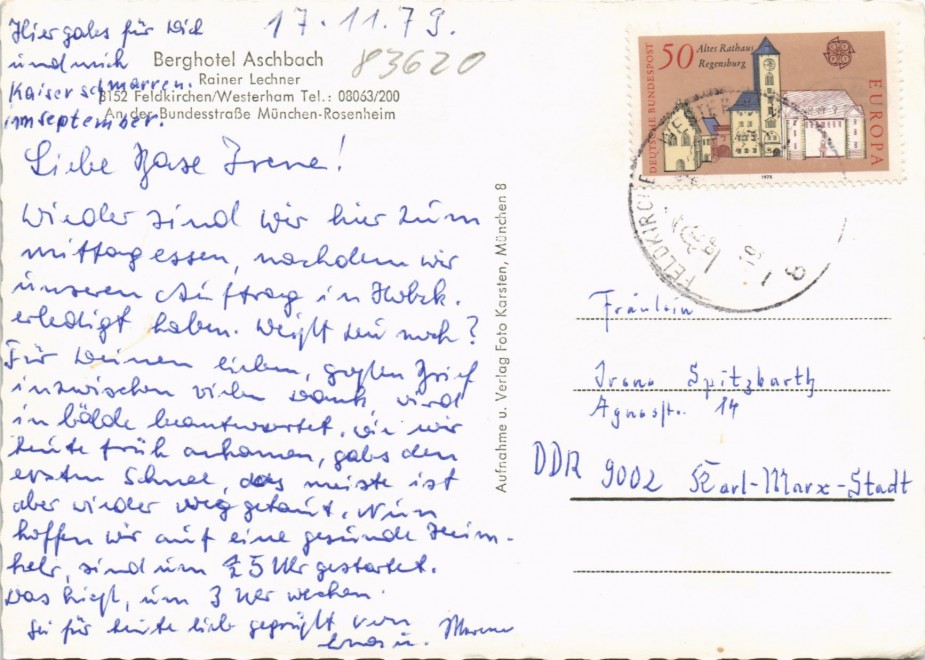 17.11.79.
Hier gabs für Dich
und mich
Kaiserschmarren.
im September.
Berghotel Aschbach
Rainer Lechner
8152 Feldkirchen/Westerham Tel.: 08063/200
An der Bundesstraße München-Rosenheim
83620
Liebe Base Irene!
Wieder sind wir hier zum
mittagessen, nachdem wir
unseren Auftrag in Holzk.
erledigt haben. Weißt Du noch?
Für Deinen lieben, großen Brief
inzwischen vielen Dank, wird
in bälde beantwortet. Als wir
heute früh ankamen, gabs den
ersten Schnee, das meiste ist
aber wieder weggetaut. Nun
hoffen wir auf eine gesunde Heim-
kehr, sind um 1/2 5 Uhr gestartet.
Das hieß, um 3 Uhr wecken.
Sei für heute lieb gegrüßt von
u.
Aufnahme u. Verlag Foto Karsten, München 8
DEUTSCHE BUNDESPOST
50
Altes Rathaus
Regensburg
EUROPA
1978
FELDKIRCHEN-WESTERHAM
Fräulein
Irene Spitzbarth
Agnesstr. 14
DDR 9002 Karl-Marx-Stadt